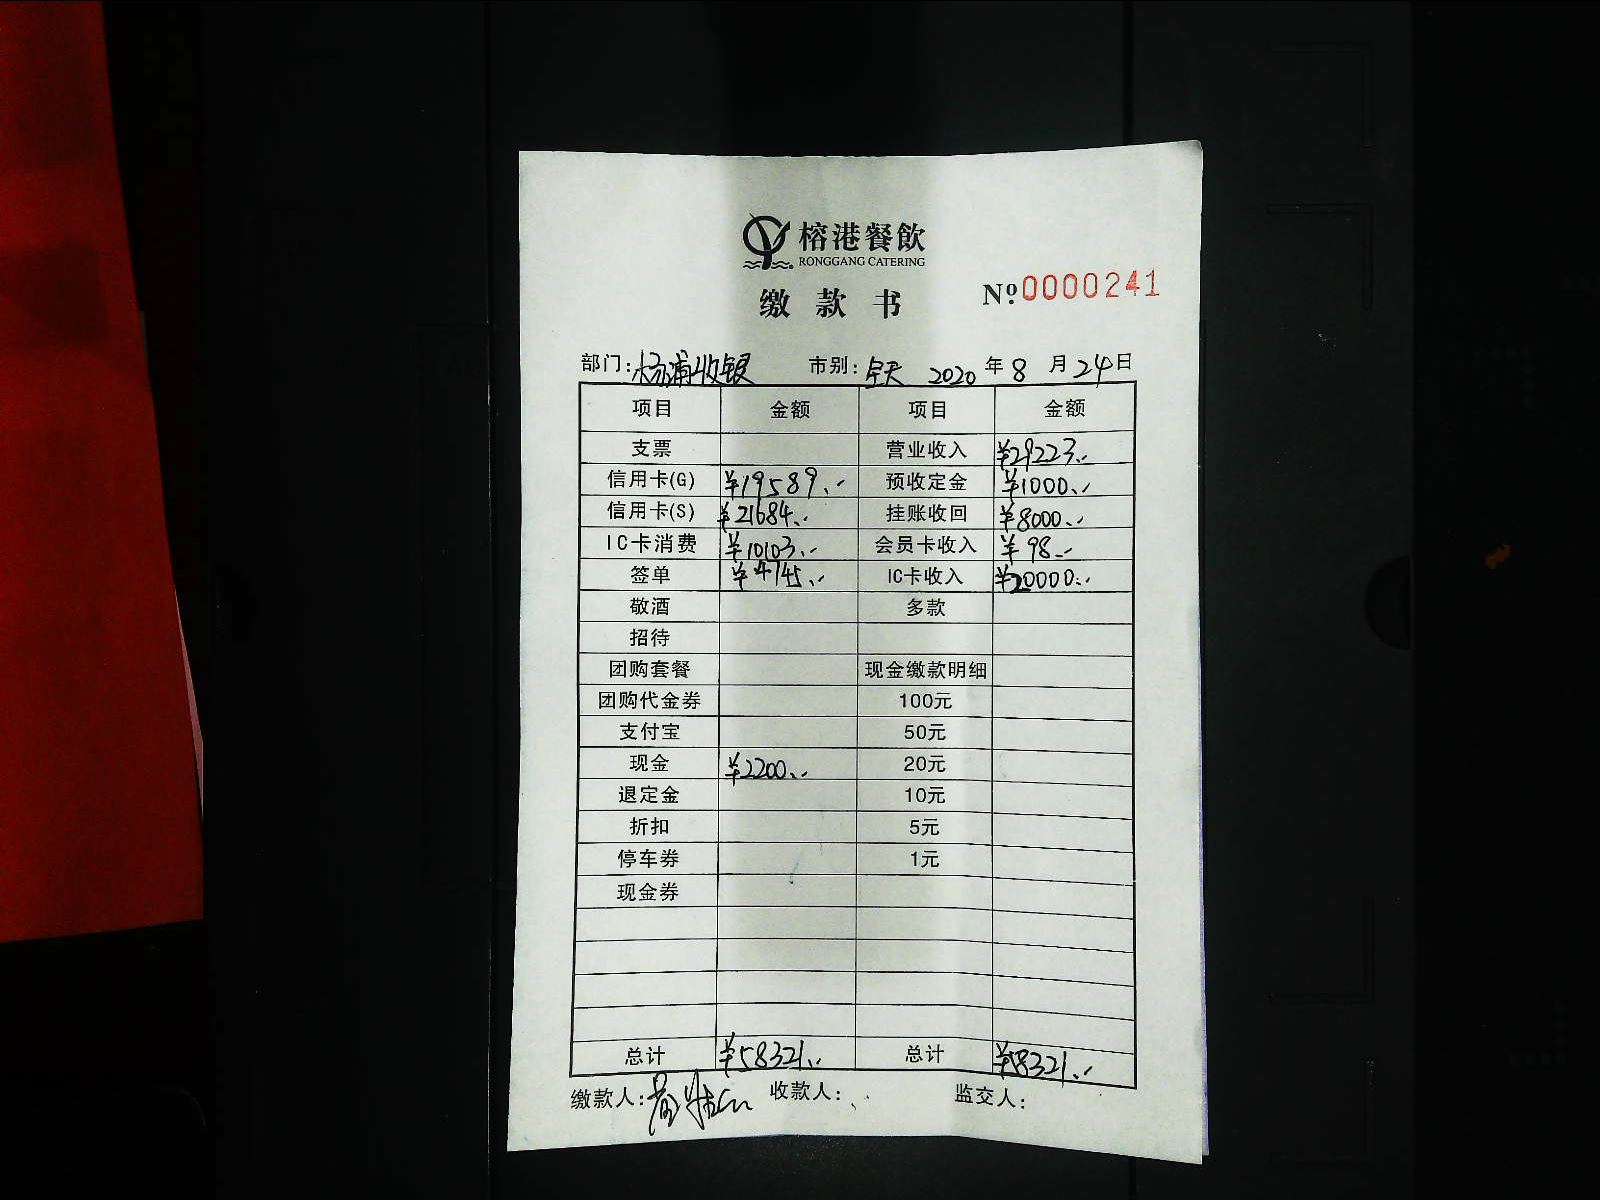 榕港餐飲
RONGGANG CATERING
缴款书
№0000241
部门:杨浦收银 市别:全天 2020年8月24日
项目 金额 项目 金额
支票 营业收入 ¥29223.-
信用卡(G) ¥19589.- 预收定金 ¥1000.-
信用卡(S) ¥21684.- 挂账收回 ¥8000.-
IC卡消费 ¥10103.- 会员卡收入 ¥98.-
签单 ¥4745.- IC卡收入 ¥20000.-
敬酒 多款
招待
团购套餐 现金缴款明细
团购代金券 100元
支付宝 50元
现金 ¥2200.- 20元
退定金 10元
折扣 5元
停车券 1元
现金券
总计 ¥58321.- 总计 ¥58321.-
缴款人: 收款人: 监交人: